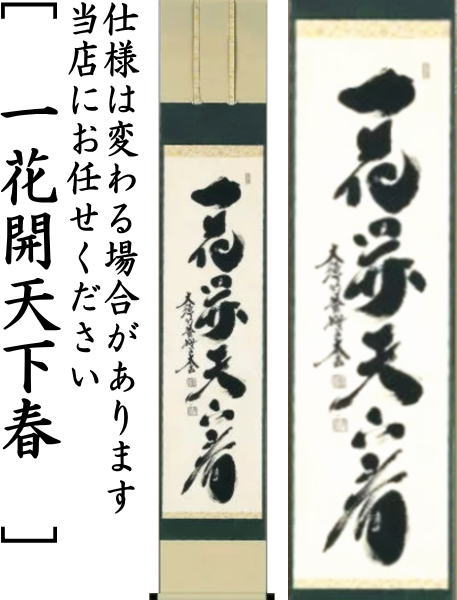 仕様は変わる場合があります
当店にお任せください
［一花開天下春］
一花開天下春
一花開天下春